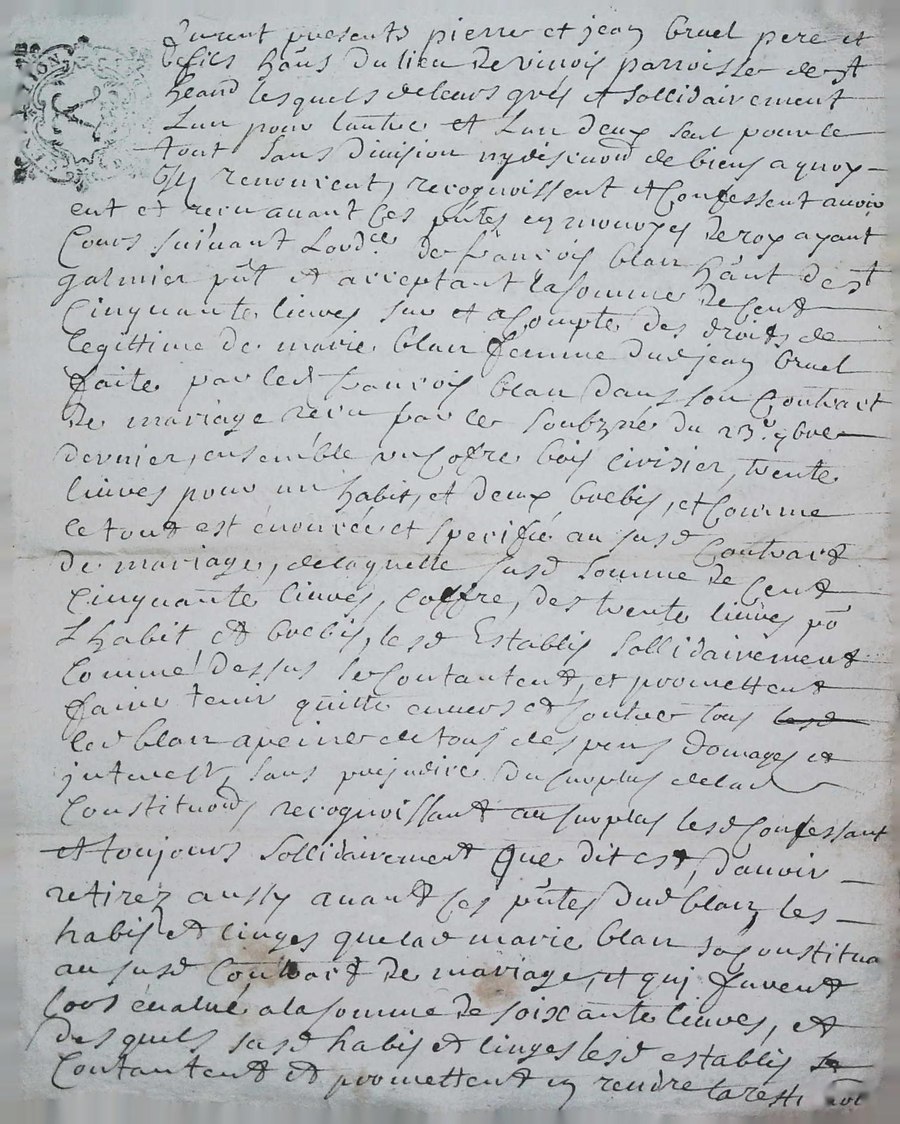 furent presents pierre et jean bruel pere et
fils hãns du lieu de vinois parroisse de st
heand lesquels de leurs grés et sollidairement
Lun pour lautre et Lun deux seul pour le
tout sans division ny discuõn de biens a quoy
ils renoncent, recognoissent et Confessent avoir
eut et receu avant ces pñtes en monoyes de roy ayant
Cours suivant Lordce de françois blan hãnt de st
galmier pñt et acceptant la somme de Cent
Cinquante livres sur et a Compte des droits de
legittime de marie blan femme dud jean bruel
faite par led françois blan dans son Contract
de mariage receu par le soubzné du 23e 9bre
dernier, ensemble un Cofre bois cirisier, trente
livres pour un habit, et deux brebis, et Comme
le tout est enoncé et speciffié au susd Contract
de mariage, de laquelle susd somme de Cent
Cinquante livres, coffre, des trente livres põ
L habit et brebis, lesd Establis sollidairement
Comme dessus se Contantent, et promettent
faire tenir quitte envers et Contre tous lesd
led blan a peine de tous despens domages et
interest, sans prejudice du surplus de lad
Constituõn, recognoissant au surplus lesd Confessant
et toujours sollidairement que dit est, d'avoir
retirez aussy avant ces pñtes dud blan, les
habis et linges que lad marie blan se Constitua
au susd Contract de mariage, et qui furent
lors evalué a la somme de soixante livres, et
desquels susd habis et linges lesd establis se
Contantent et promettent en rendre